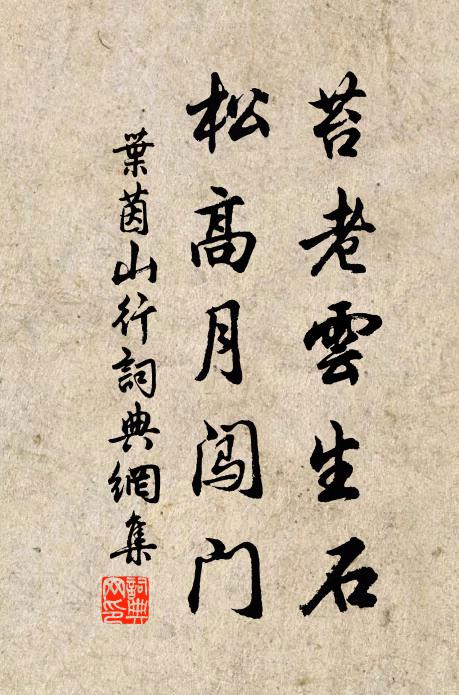 苔老雲生石
松高月闯门
葉茵山行詞典網集
詞典网印